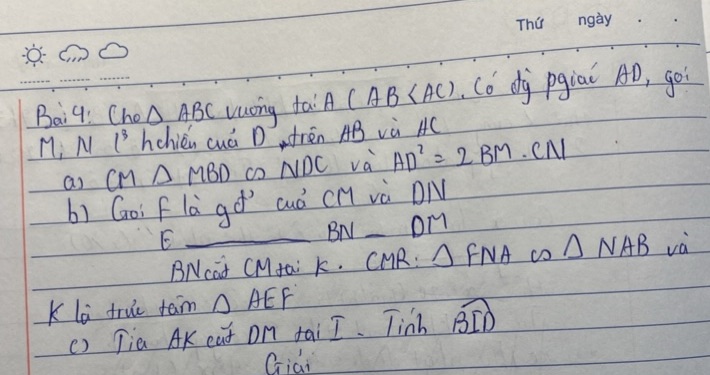 Thứ ngày
Bài 4: Cho Δ ABC vuông tại A (AB < AC). Có đg pgiác AD, gọi
M, N l³ hchiếu của D trên AB và AC
a) CM Δ MBD ∽ NDC và AD² = 2 BM. CN
b) Gọi F là gđ² của CM và DN
E ____ BN _ DM
BN cắt CM tại K. CMR: Δ FNA ∽ Δ NAB và
K là trực tâm Δ AEF
c) Tia AK cắt DM tại I. Tính BID
Giải